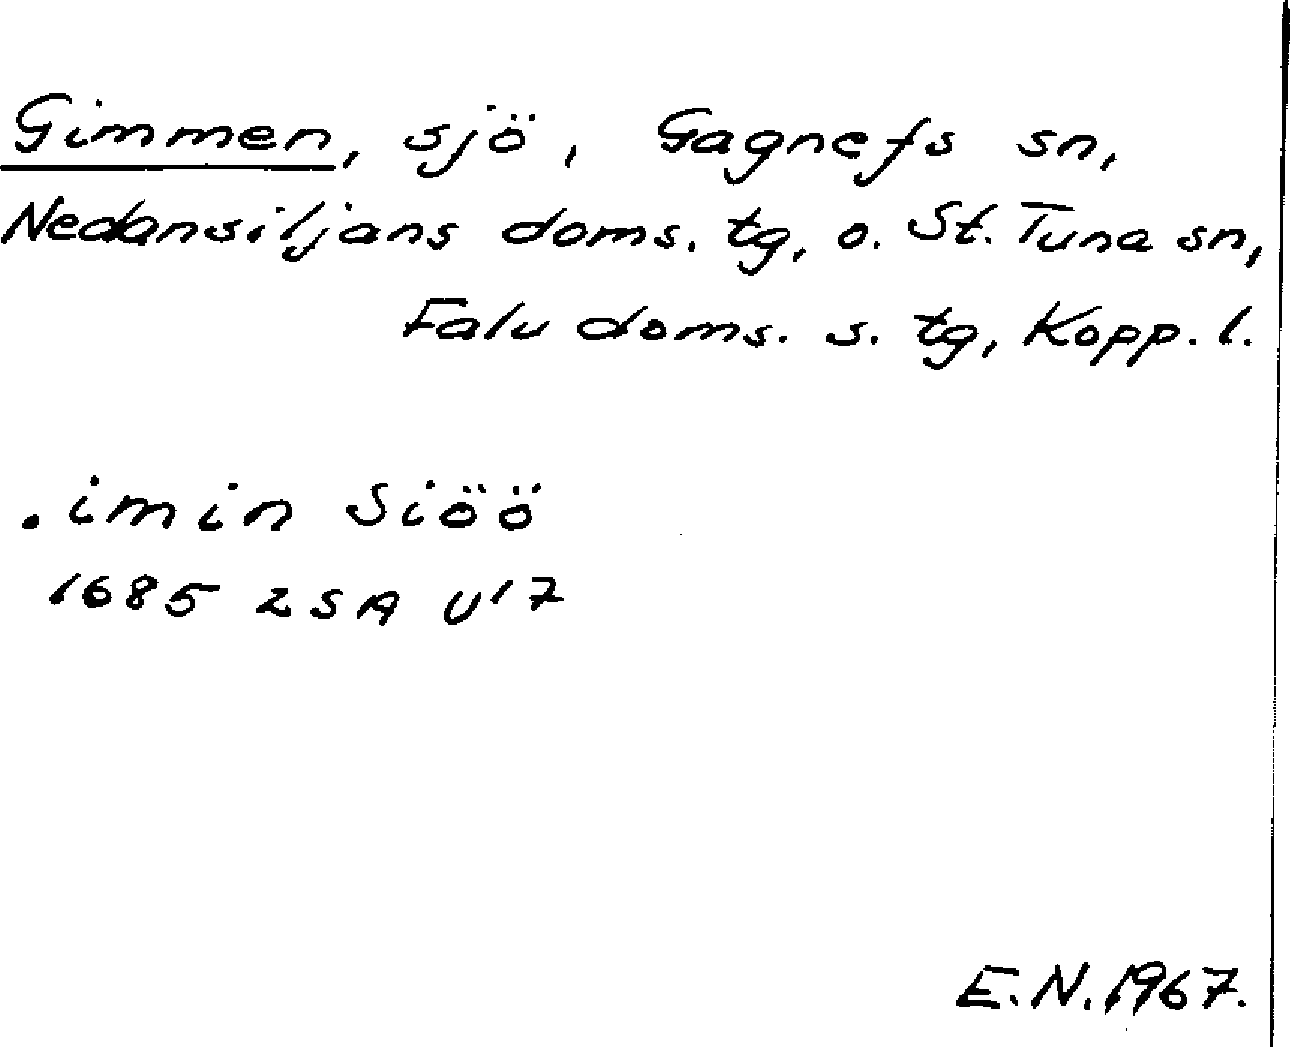 Gimmen, sjö, Gagnefs sn,
Nedansiljans doms. tg, o. St. Tuna sn,
Falu doms. s. tg, Kopp. l.
.imin Siöö
1685 LSA U17
E.N. 1967.